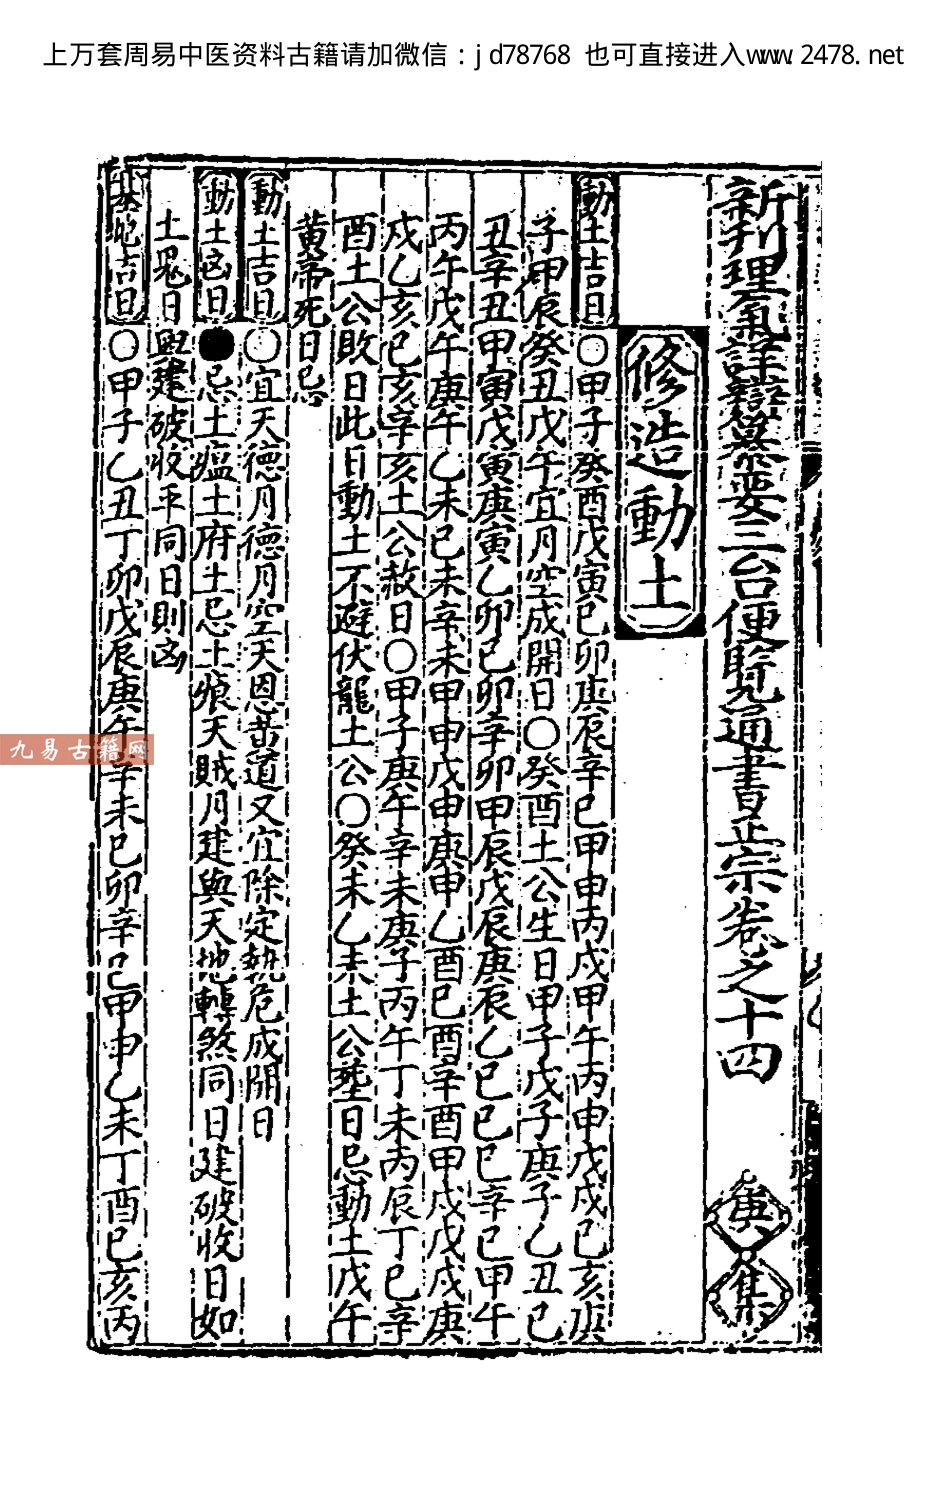 上万套周易中医资料古籍请加微信：jd78768 也可直接进入www.2478.net
新刋理氣詳辯纂要三台便覽通書正宗卷之十四
寅集
修造動土
動土吉日〇甲子癸酉戊寅己卯庚辰辛巳甲申丙戌甲午丙申戊戌己亥庚
子甲辰癸丑戊午宜月空成開日〇癸酉土公生日甲子戊子庚子乙丑己
丑辛丑甲寅戊寅庚寅乙卯己卯辛卯甲辰戊辰庚辰乙巳己巳辛巳甲午
丙午戊午庚午乙未己未辛未甲申戊申庚申乙酉己酉辛酉甲戌戊戌庚
戌乙亥己亥辛亥土公赦日〇甲子庚午辛未庚子丙午丁未丙辰丁巳辛
酉土公敗日此日動土不避伏龍土公〇癸未乙未土公塟日忌動土戊午
黄帝死日忌
動土吉日〇宜天德月德月空天恩黃道又宜除定執危成開日
動土凶日●忌土瘟土府土忌土痕天賊月建與天地轉煞同日建破收日如
土鬼日與建破收平同日則凶
基地吉日〇甲子乙丑丁卯戊辰庚午辛未己卯辛巳甲申乙未丁酉己亥丙
九易古籍网